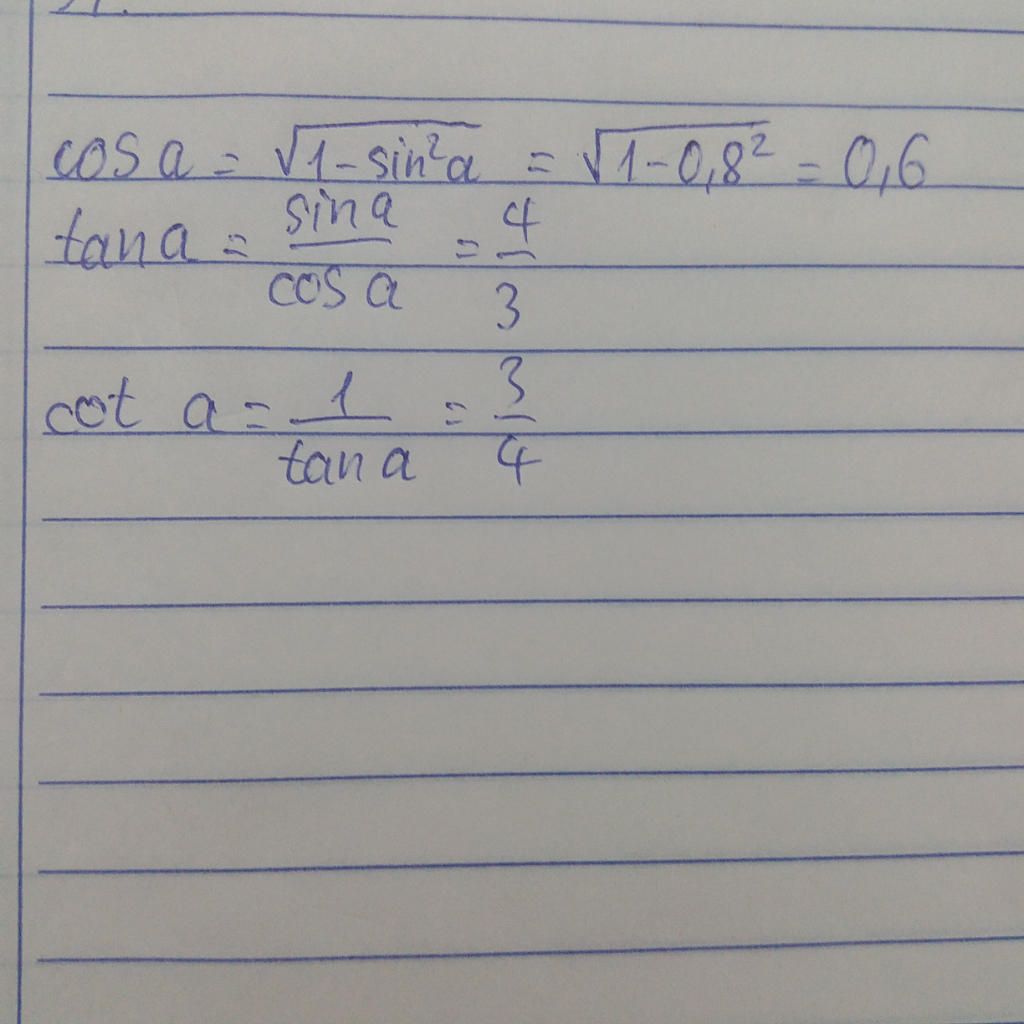 cos a = √1-sin²a = √1-0,8² = 0,6
tan a = sin a / cos a = 4/3
cot a = 1 / tan a = 3/4